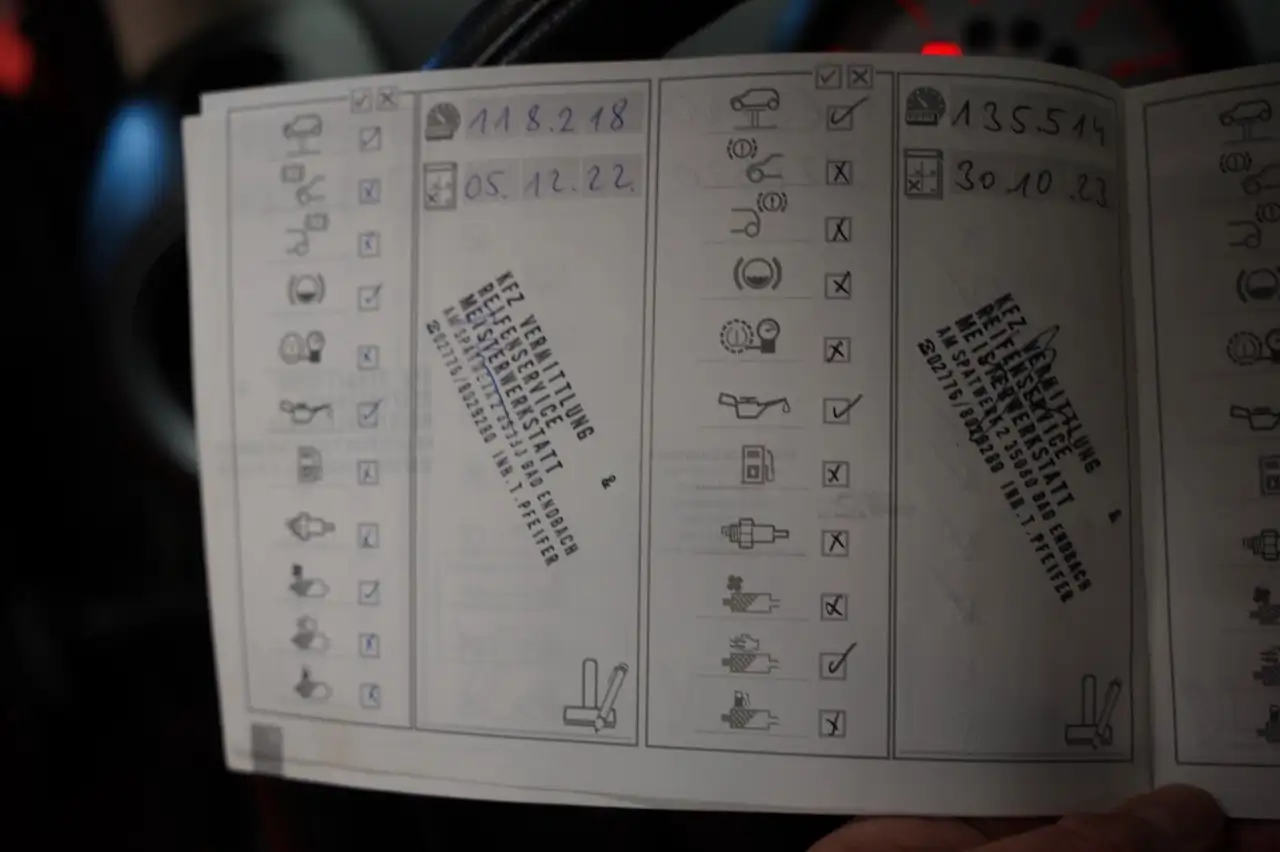 118.218
05.12.22.
KFZ VERMITTLUNG &
REIFENSERVICE
MEISTERWERKSTATT
BAD ENDBACH
☎02776/8029280 INH.T.PFEIFER
135.514
30.10.23
KFZ VERMITTLUNG &
REIFENSERVICE
MEISTERWERKSTATT
AM SPATWERK 2 35080 BAD ENDBACH
☎02776/8029280 INH.T.PFEIFER